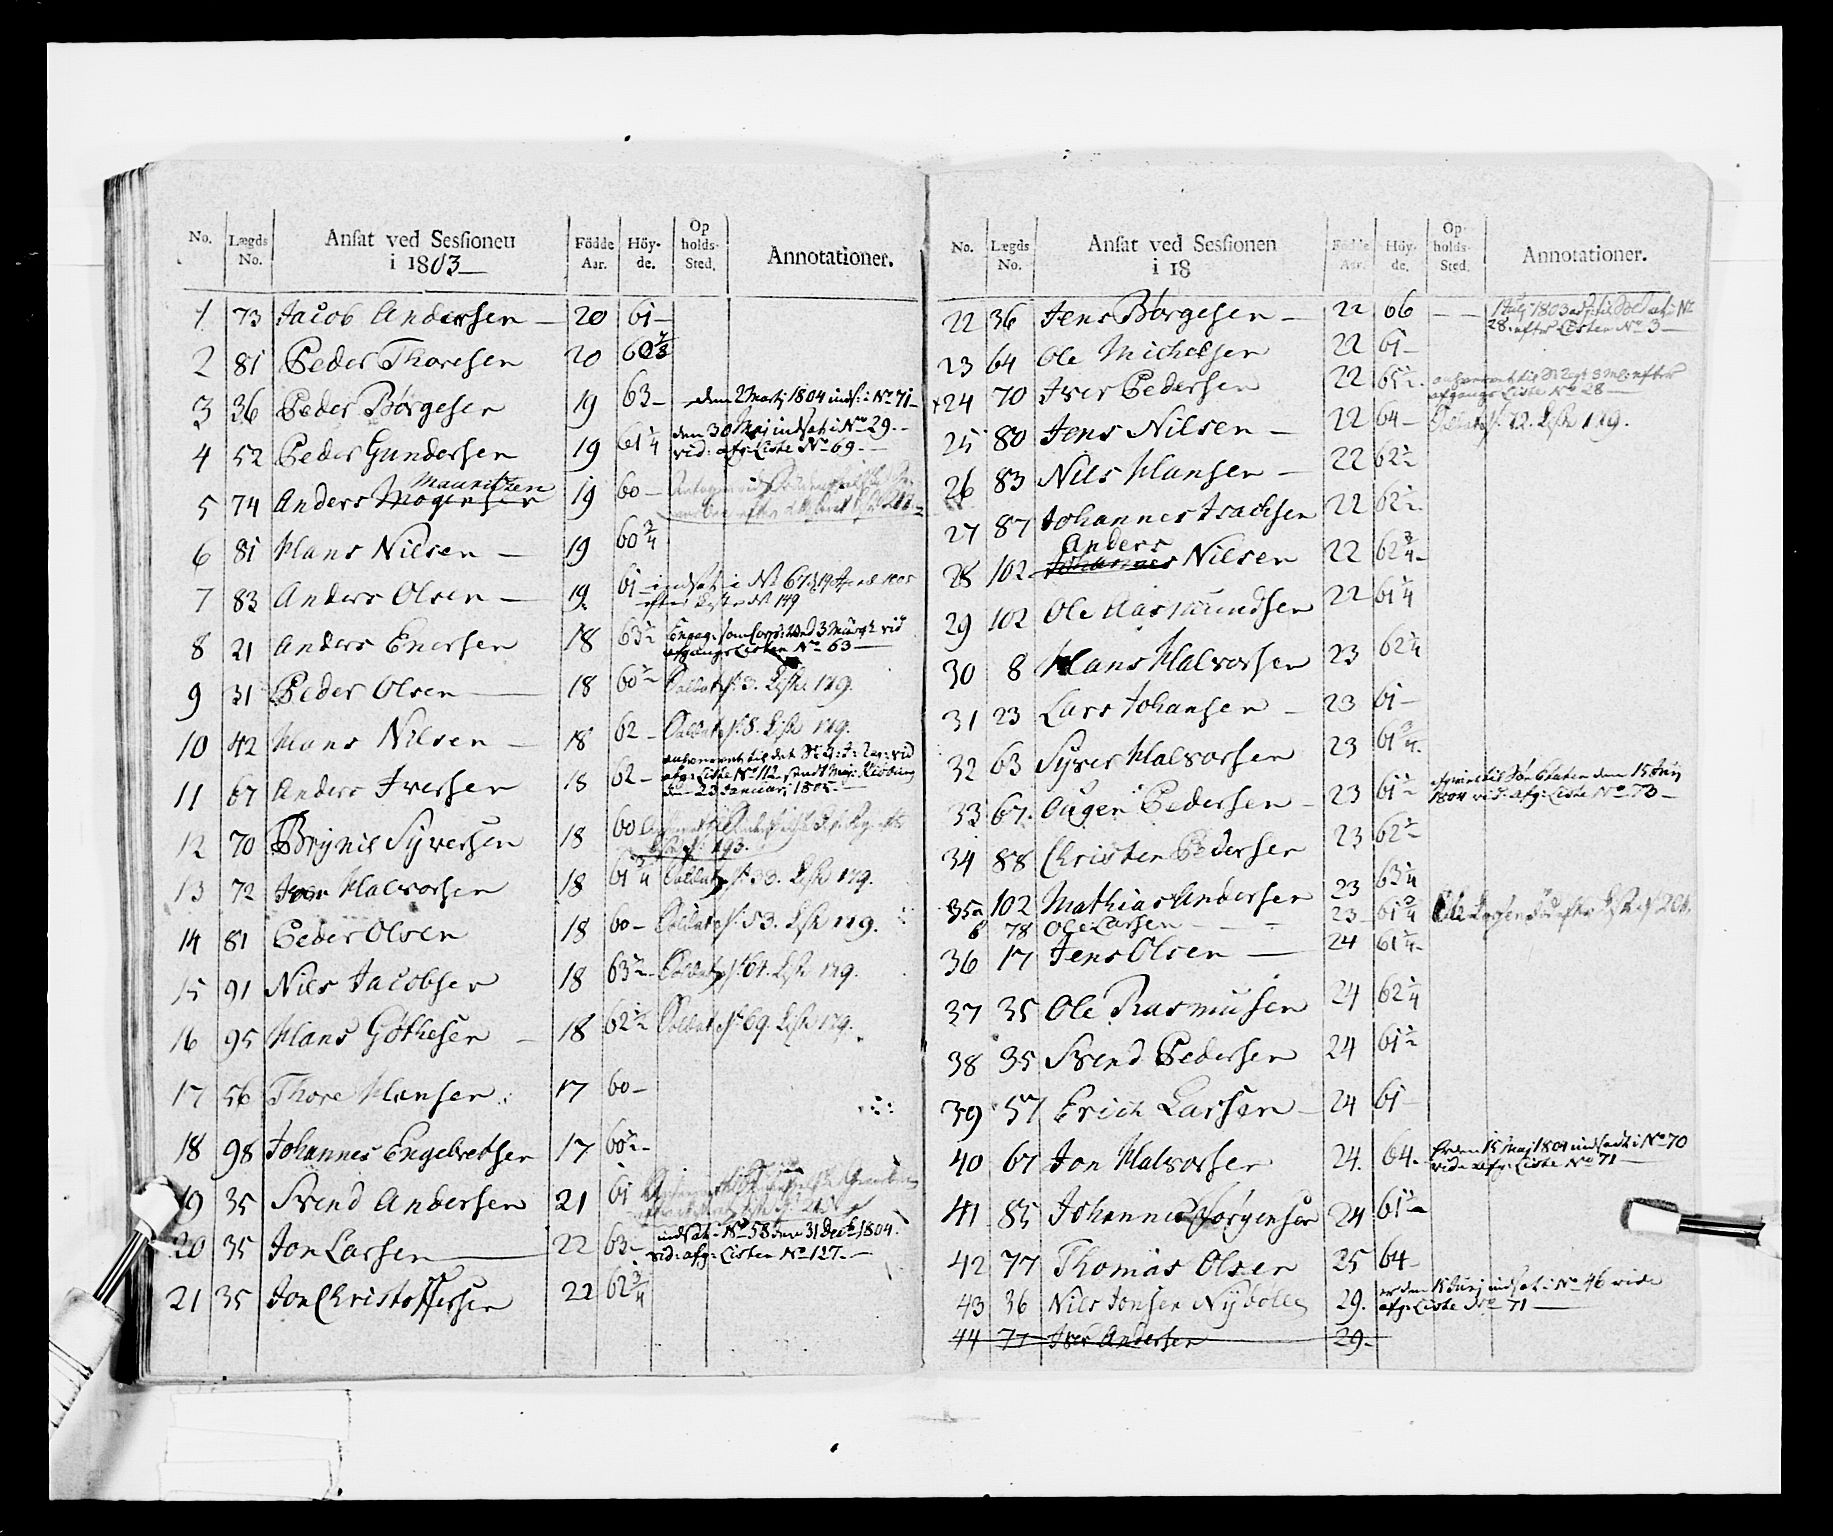 No. Lægds No. Ansat ved Sessionen i 1803 Födde Aar. Höyde. Opholds-Sted. Annotationer.
1 73 Jacob Andersen 20 61
2 81 Peder Thoresen 20
3 36 Peder Børgesen 19 63 den 2 Martj 1804 inds: i No 71
4 52 Peder Gundersen 19 61 1/4 den 30 Maj indsat i No 29.
vid: afg: Liste No 69.
Mauritzen
5 74 Anders Mogensen 19 60
6 81 Hans Nilsen 19 60 3/4
7 83 Anders Olsen 19 61 indsat i No 67
efter Liste No 149
8 21 Anders Enersen 18 63 1/2 Engag: som Corp: vid
afgangs Listen No 63
9 31 Peder Olsen 18 60 1/2 Soldat No 3. Liste 179.
10 42 Hans Nilsen 18 62 Soldat No 8. Liste 179.
11 67 Anders Iversen 18 62
afg: Liste No 112
23 Januari 1805
12 70 Brynil Syversen 18 60
No 193.
13 72 Iver Halvorsen 18 61 3/4 Soldat No 33. Liste 179.
14 81 Peder Olsen 18 60 Soldat No 53. Liste 179.
15 91 Nils Jacobsen 18 63 1/2 Soldat No 61. Liste 179.
16 95 Hans Göthesen 18 62 1/2 Soldat No 69. Liste 179.
17 56 Thore Hansen 17 60
18 98 Johannes Engebretsen 17 60 1/2
19 35 Svend Andersen 21 61
20 35 Jon Larsen 22 63 indsat i No 58 den 31 Decb 1804.
vid: afg: Listen No 127.
21 35 Jon Christoffersen 22 62 3/4
No. Lægds No. Ansat ved Sessionen i 18 Födde Aar. Höyde. Opholds-Sted. Annotationer.
22 36 Jens Børgesen 22 66 1 Julj 1803 No
28. efter Listen No 3
23 64 Ole Michelsen 22 61
24 70 Iver Pedersen 22 65 1/2 efter
afgangs Liste No 28
25 80 Jens Nilsen 22 64 Soldat No 12. Liste 179.
26 83 Nils Hansen 22 62 1/2
27 87 Johannes Isachsen 22 62 1/2
Anders
28 102 Johannes Nilsen 22 62 3/4
29 102 Ole Aasmundsen 22 61 1/4
30 8 Hans Halvorsen 23 62 1/4
31 23 Lars Johansen 23 61
32 63 Syver Halvorsen 23 61 3/4
33 67 Augen Pedersen 23 61 1/2 den 15 Junj
1804 vid: afg: Liste No 73
34 88 Christen Pedersen 23 62 1/2
35a 102 Mathias Andersen 23 63 1/4
b 78 Ole Larsen 23 61 3/4
36 17 Jens Olsen 24 61 1/4
37 35 Ole Rasmusen 24 62 1/4
38 35 Svend Pedersen 24 61 1/2
39 57 Erich Larsen 24 61
40 67 Jon Halvorsen 24. 64 er den 15 Maj 1804 indsadt i No 70
vid: afg: Liste No 71
41 85 Johannes Jørgensen 24 61 1/2
42 77 Thomas Olsen 25 64
43 36 Nils Jonsen Nyboller 29. er den 15 Junj indsat i No 46 vide
afg: Liste No 71
44 77 Iver Andersen 29